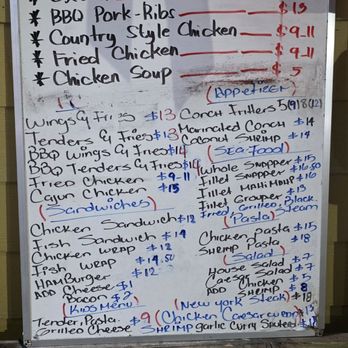 * BBQ Pork-Ribs $13
* Country Style Chicken $9-11
* Fried Chicken $9-11
* Chicken Soup $5
(Appetizer)
Wings & Fries $13
Tenders & Fries $13
BBQ Wings & Fries $14
BBQ Tenders & Fries $14
Fried Chicken $9-11
Cajun Chicken $15
(Sandwiches)
Chicken Sandwich $12
Fish Sandwich $14
Chicken Wrap $12
Fish Wrap $14.50
Hamburger $12
ADD Cheese $1
Bacon $2
(Kids Menu)
Tender, Pasta $9
Grilled Cheese
Conch Fritters 5(9)8(12)
Marinated Conch $14
Coconut Shrimp $14
(Sea-Food)
Whole Snapper $15
Fillet Snapper
Fillet Mahi Mahi
Fillet Grouper $13
Fried, Grilled, Black, Steam
(Pasta)
Chicken Pasta $15
Shrimp Pasta $18
(Salad)
House Salad $7
Caesar Salad $7
ADD Chicken $5
Shrimp $8
(New York Steak) $18
(Chicken Caesar Wrap) $13
Shrimp garlic Curry $18